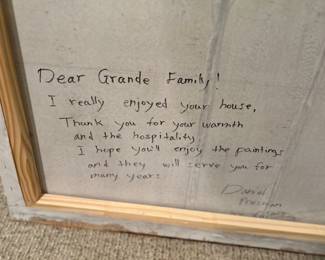 Dear Grande Family!
I really enjoyed your house,
Thank you for your warmth
and the hospitality.
I hope you'll enjoy the paintings
and they will serve you for
many years.
Daniel